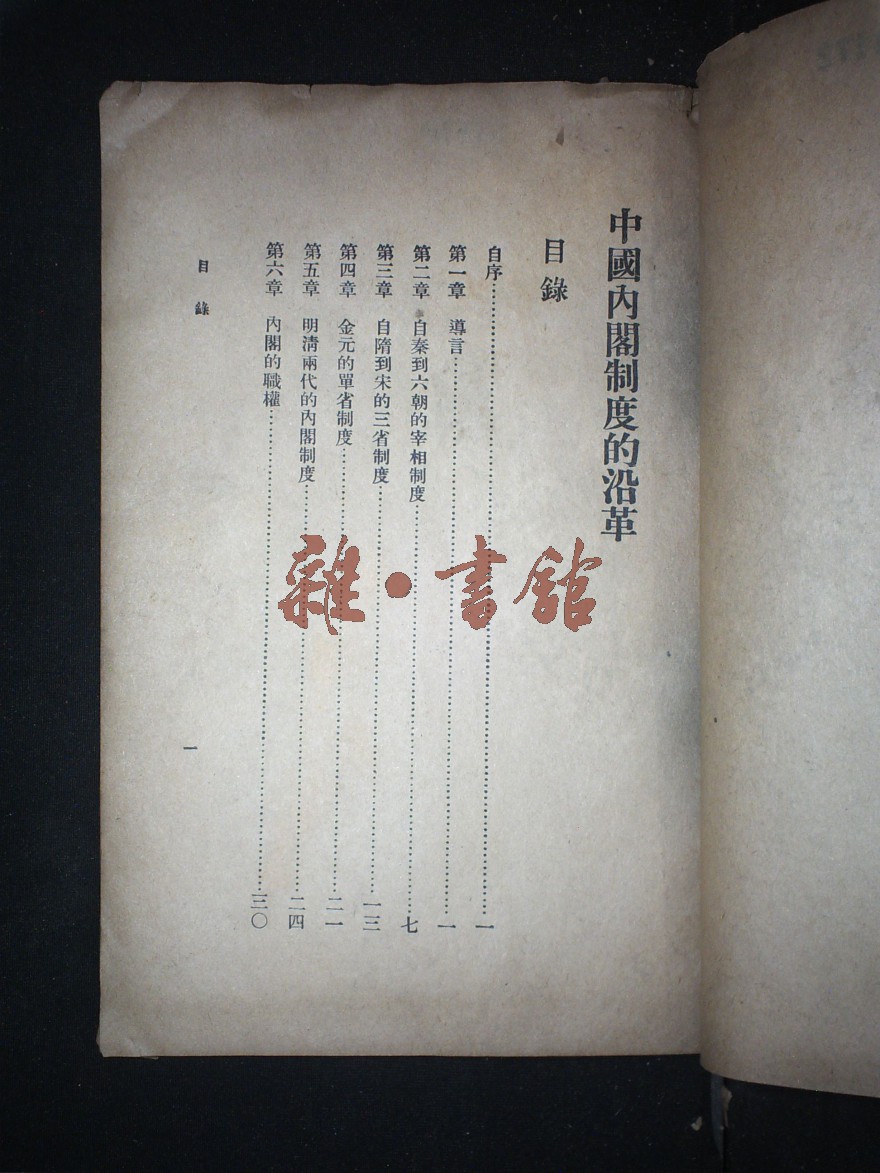 中國內閣制度的沿革
目錄
自序……一
第一章 導言……一
第二章 自秦到六朝的宰相制度……七
第三章 自隋到宋的三省制度……一三
第四章 金元的單省制度……二一
第五章 明淸兩代的內閣制度……二四
第六章 內閣的職權……三〇
目錄
一
雜·書館